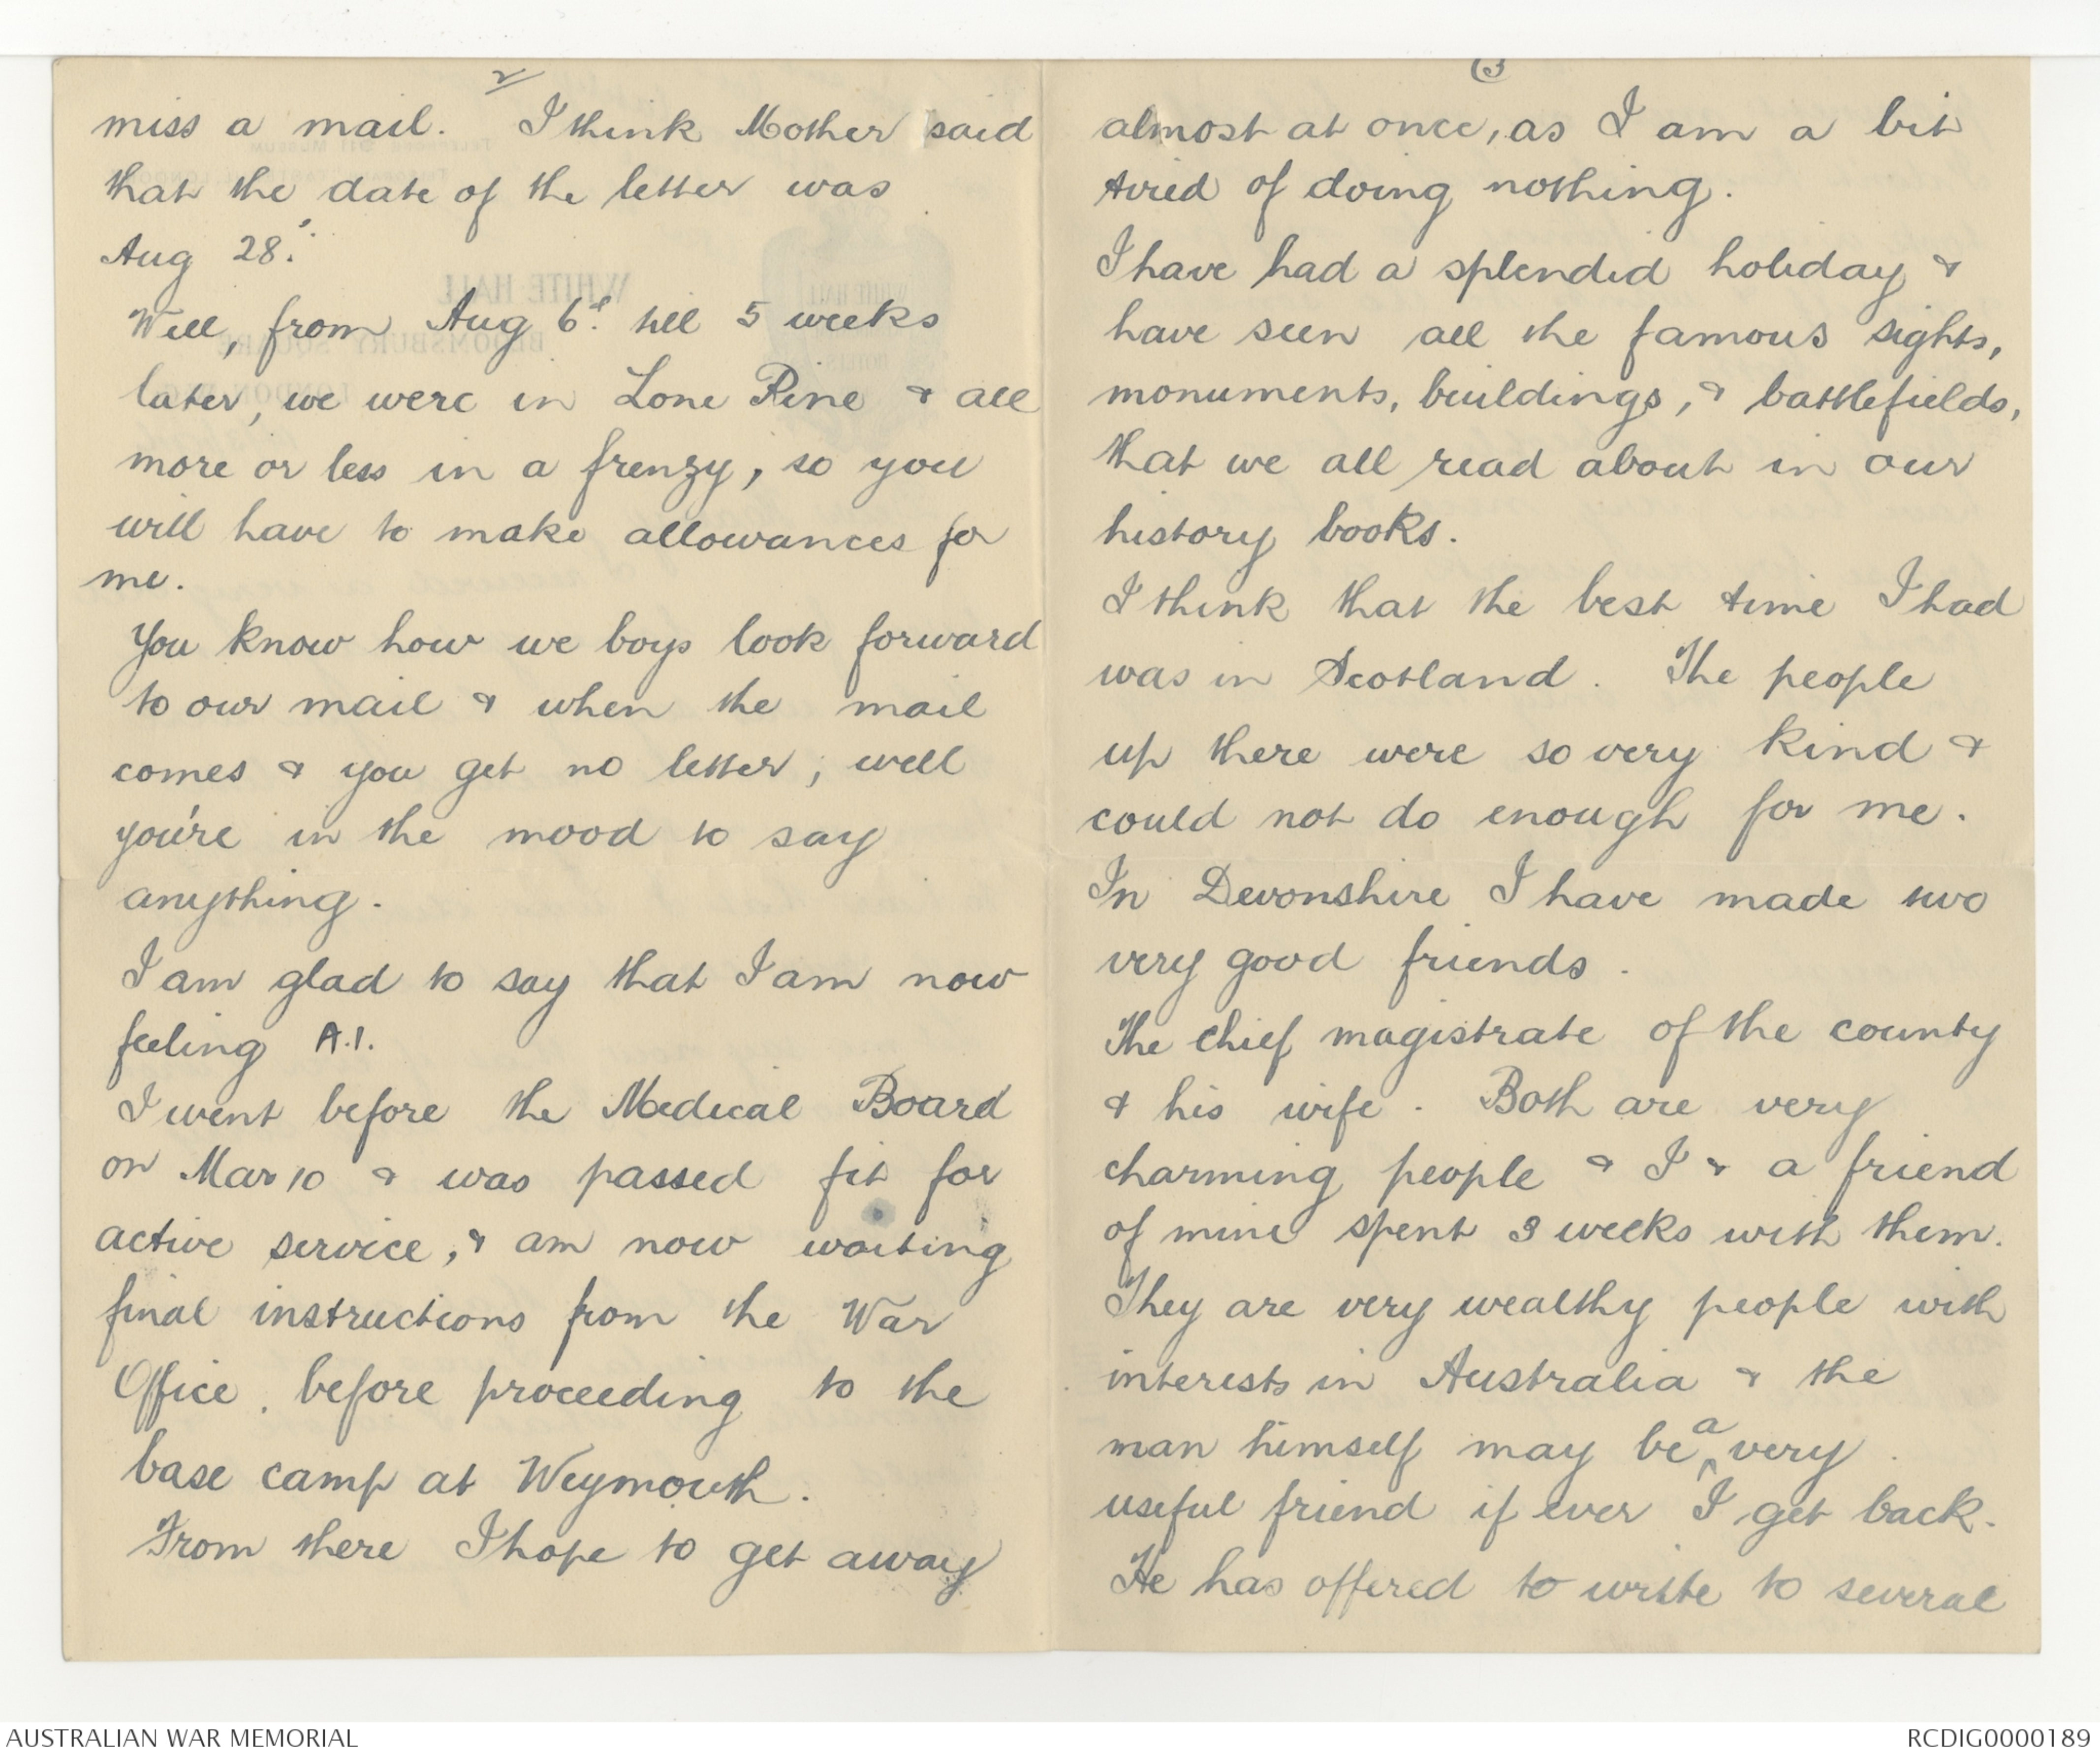 2
miss a mail. I think Mother said
that the date of the letter was
Aug 28.
Well, from Aug 6. till 5 weeks
later, we were in Lone Pine & all
more or less in a frenzy, so you
will have to make allowances for
me.
You know how we boys look forward
to our mail & when the mail
comes & you get no letter, well
you're in the mood to say
anything.
I am glad to say that I am now
feeling A.1.
I went before the Medical Board
on Mar 10 & was passed fit for
active service, & am now waiting
final instructions from the War
Office, before proceeding to the
base camp at Weymouth.
From there I hope to get away
(3
almost at once, as I am a bit
tired of doing nothing.
I have had a splendid holiday &
have seen all the famous sights,
monuments, buildings, & battlefields,
that we all read about in our
history books.
I think that the best time I had
was in Scotland. The people
up there were so very kind &
could not do enough for me.
In Devonshire I have made two
very good friends.
The chief magistrate of the county
& his wife. Both are very
charming people & I & a friend
of mine spent 3 weeks with them.
They are very wealthy people with
interests in Australia & the
man himself may be a very
useful friend if ever I get back.
He has offered to write to several
AUSTRALIAN WAR MEMORIAL
RCDIG0000189